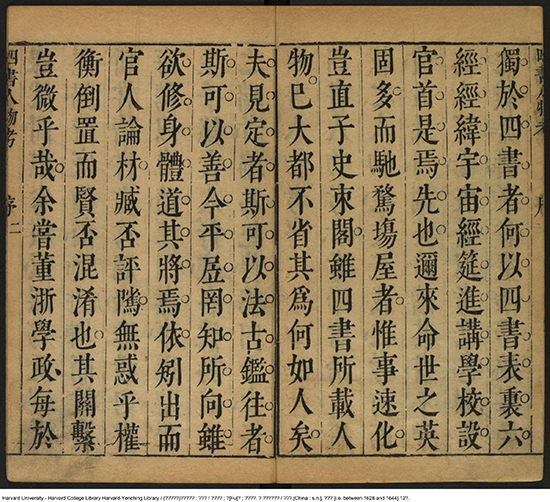 獨於四書者何以四書表裏六
經經緯宇宙經筵進講學校設
官首是焉先也邇來命世之英
固多而馳騖塲屋者惟事速化
豈直子史束閣雖四書所載人
物巳大都不省其爲何如人矣
夫見定者斯可以法古鑑往者
斯可以善今平居罔知所向雖
欲修身體道其將焉依矧出而
官人論材臧否評隲無惑乎權
衡倒置而賢否混淆也其關繫
豈微乎哉余嘗董浙學政每於
四書人物考 序 二
Harvard University - Harvard College Library Harvard-Yenching Library / (?????)????? : ??? / ???? ; ?[Hu]? ; ????. ? ?????? / ??? [China : s.n.], ??? [i.e. between 1628 and 1644] 12?.